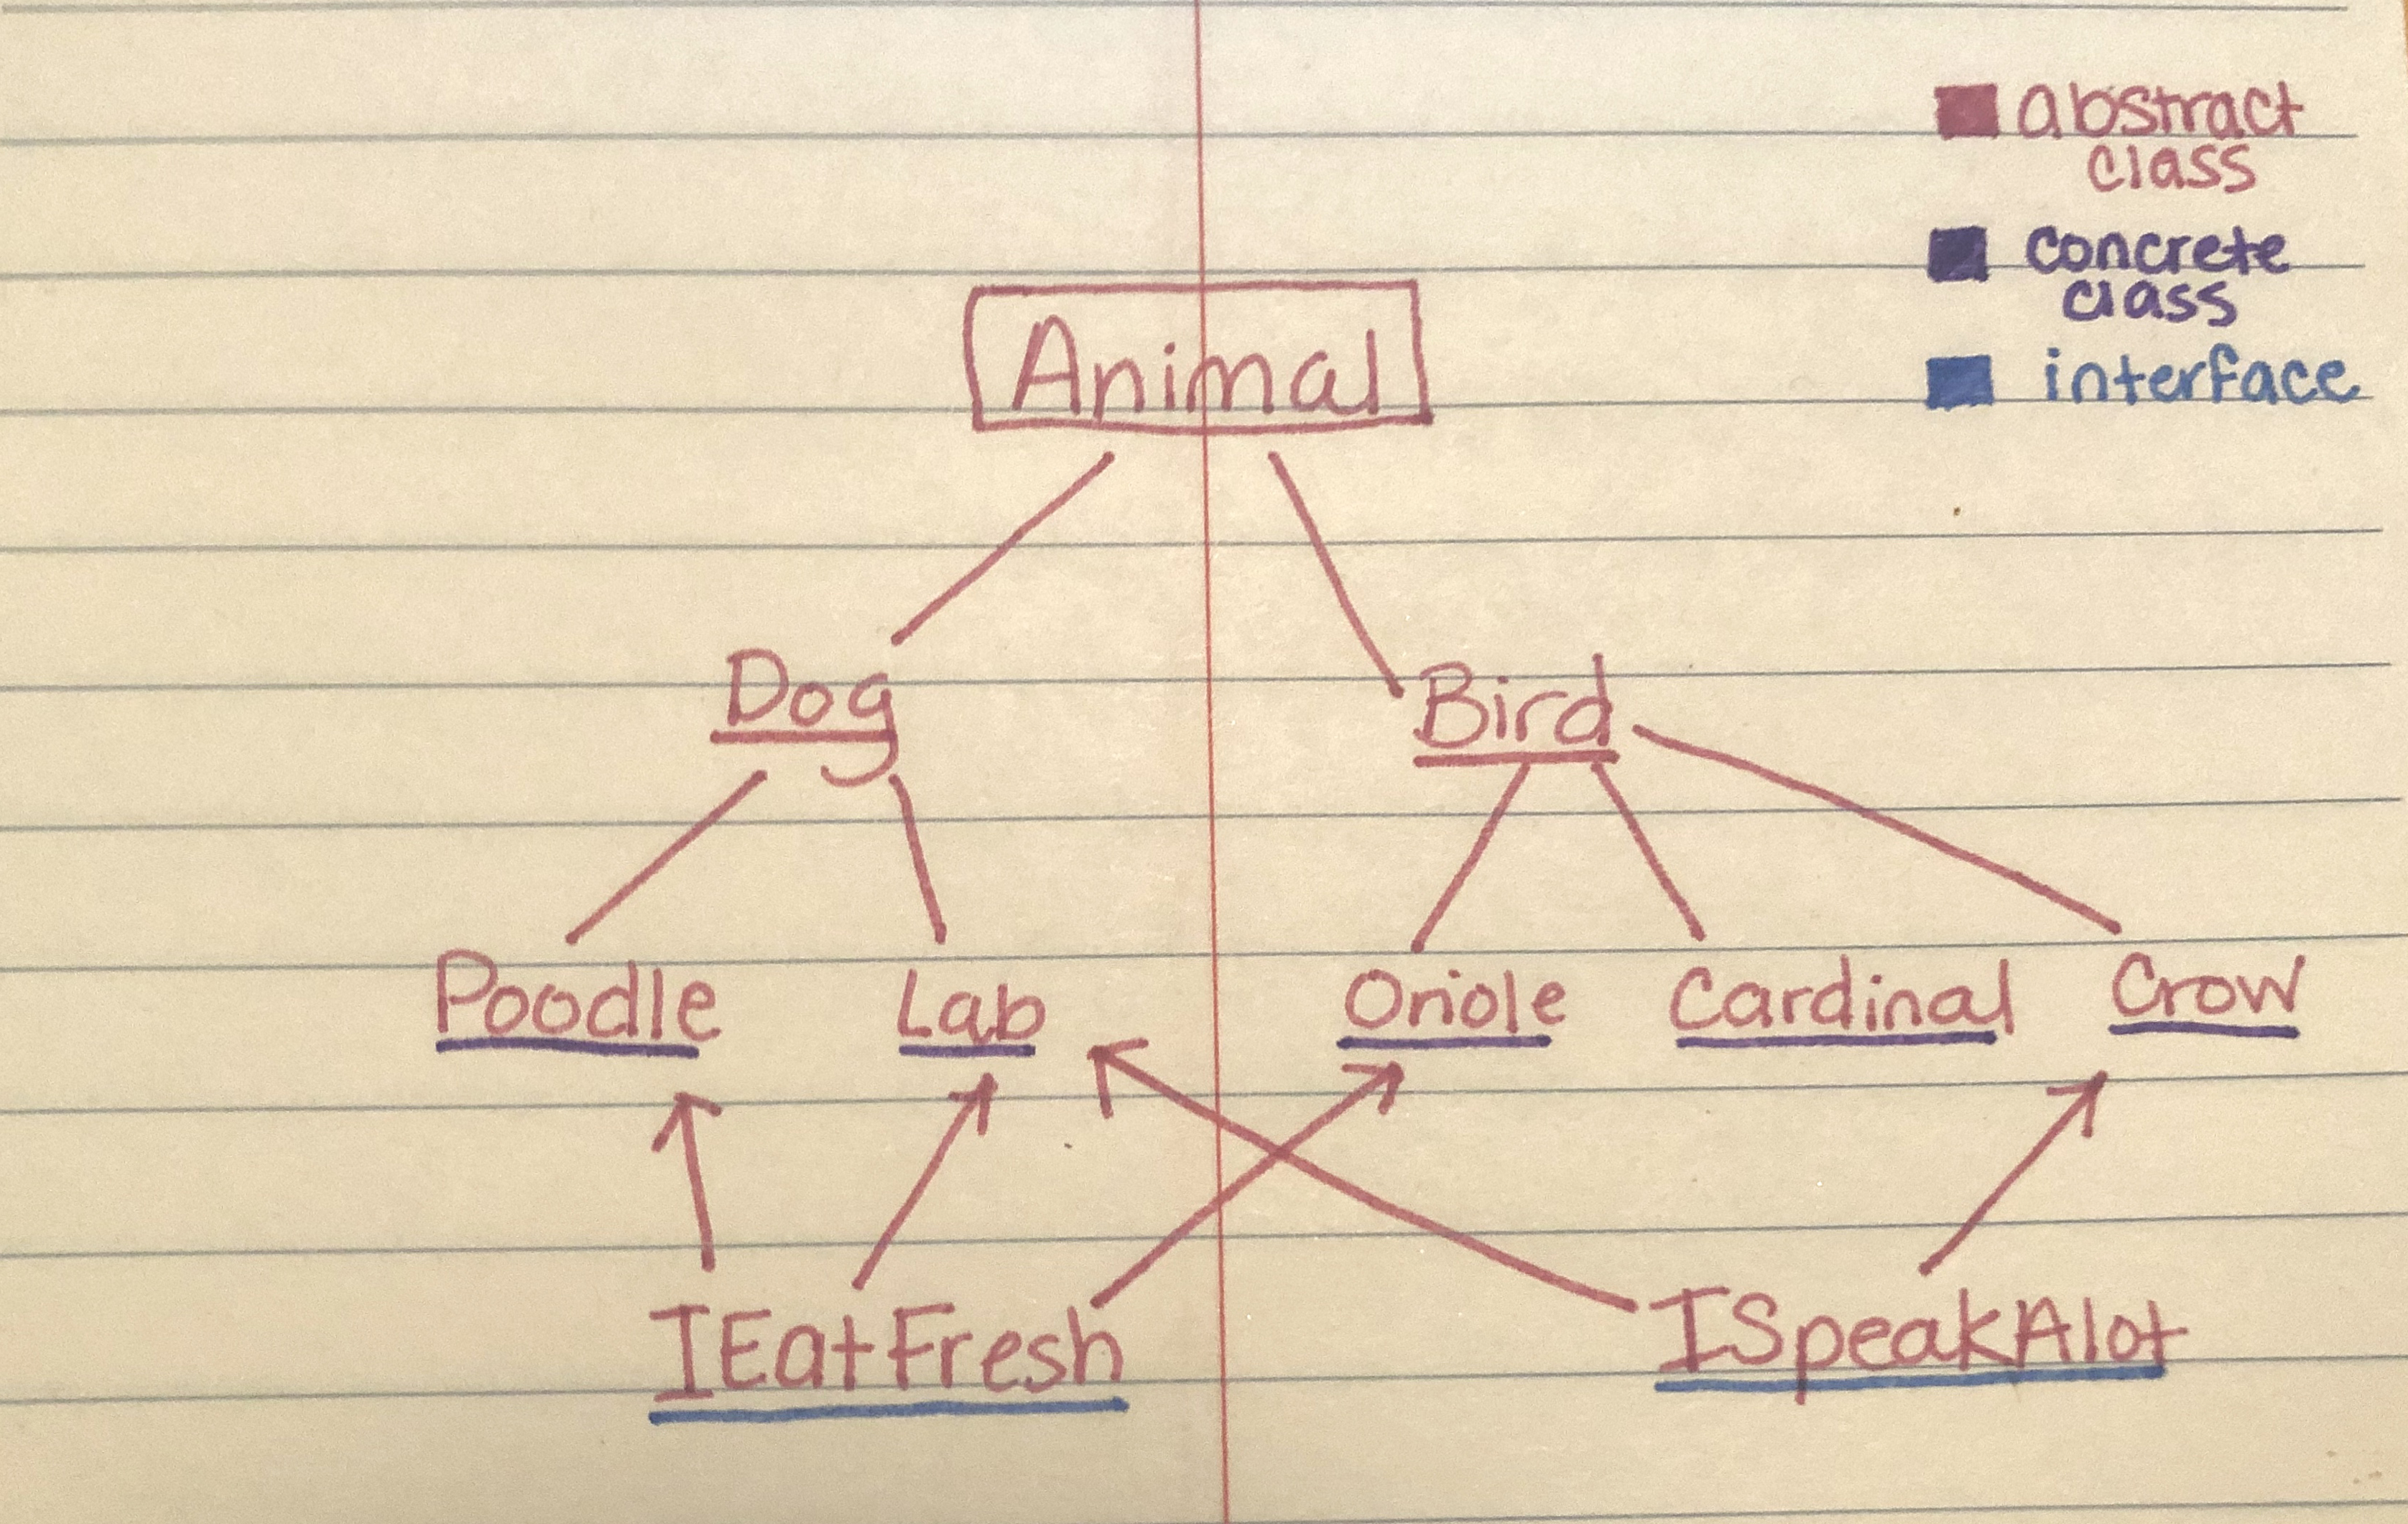 abstract
class
concrete
class
interface
Animal
Dog
Bird
Poodle Lab Oriole Cardinal Crow
IEatFresh ISpeakAlot